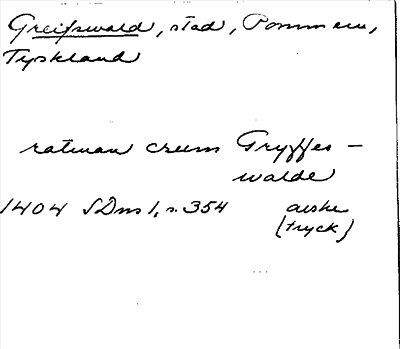 Greifswald, stad, Pommern,
Tyskland
ratman czum Gryffes-
walde
1404 SDns 1, s. 354 avskr
(tryck)